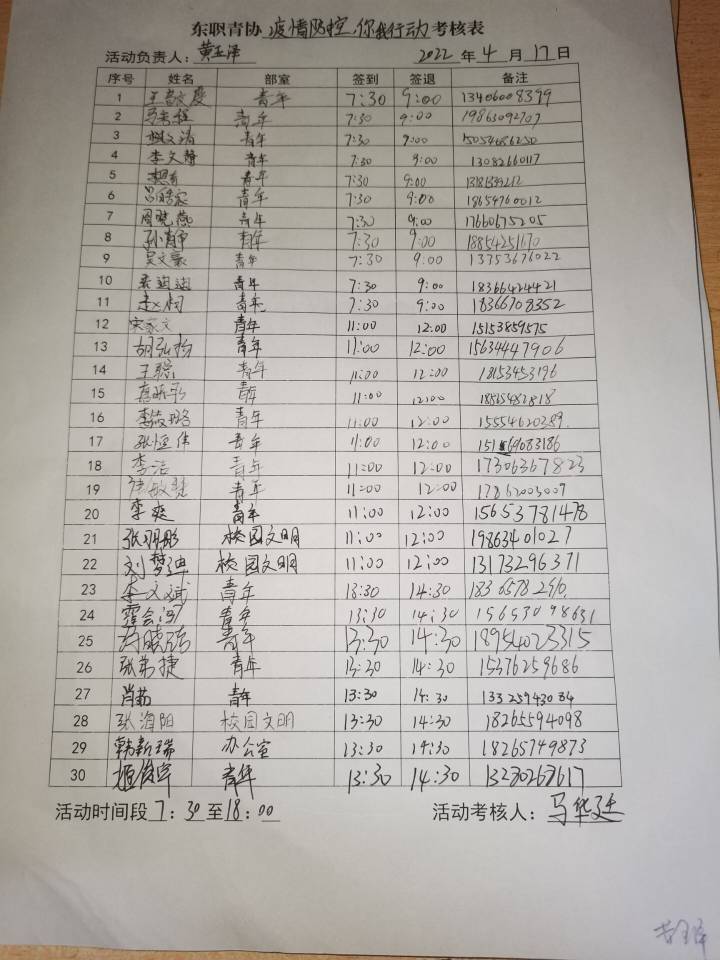 东职青协 疫情防控,你我行动 考核表
活动负责人: 黄玉泽 2022 年 4 月 17 日
序号 姓名 部室 签到 签退 备注
1 青年 7:30 9:00 13406008399
2 青年 7:30 9:00 19863092707
3 青年 7:30 9:00 15054686250
4 李文静 青年 7:30 9:00 13082660117
5 青年 7:30 9:00
6 青年 7:30 9:00 18654760012
7 周晓燕 青年 7:30 9:00 17660675205
8 青年 7:30 9:00 18854251170
9 吴文豪 青年 7:30 9:00 13753676022
10 青年 7:30 9:00 18366424421
11 青年 7:30 9:00 18366708352
12 宋家文 青年 11:00 12:00 15153859575
13 青年 11:00 12:00 15634447906
14 王聪 青年 11:00 12:00 18153453196
15 青年 11:00 12:00
16 李筱璐 青年 11:00 12:00 15554620389
17 张恒伟 青年 11:00 12:00
18 李洁 青年 11:00 12:00 17306367823
19 青年 11:00 12:00 17862003007
20 李爽 青年 11:00 12:00 15653781478
21 张羽彤 校园文明 11:00 12:00 19863401027
22 刘梦 校园文明 11:00 12:00 13173296371
23 李文斌 青年 13:30 14:30
24 霍会河 青年 13:30 14:30 15653098631
25 青年 13:30 14:30 18954023315
26 张弟捷 青年 13:30 14:30 15376259686
27 肖茹 青年 13:30 14:30 13325943084
28 张海阳 校园文明 13:30 14:30 18265594098
29 韩新瑞 办公室 13:30 14:30 18265749873
30 青年 13:30 14:30
活动时间段 7:30 至 18:00 活动考核人: 马华廷